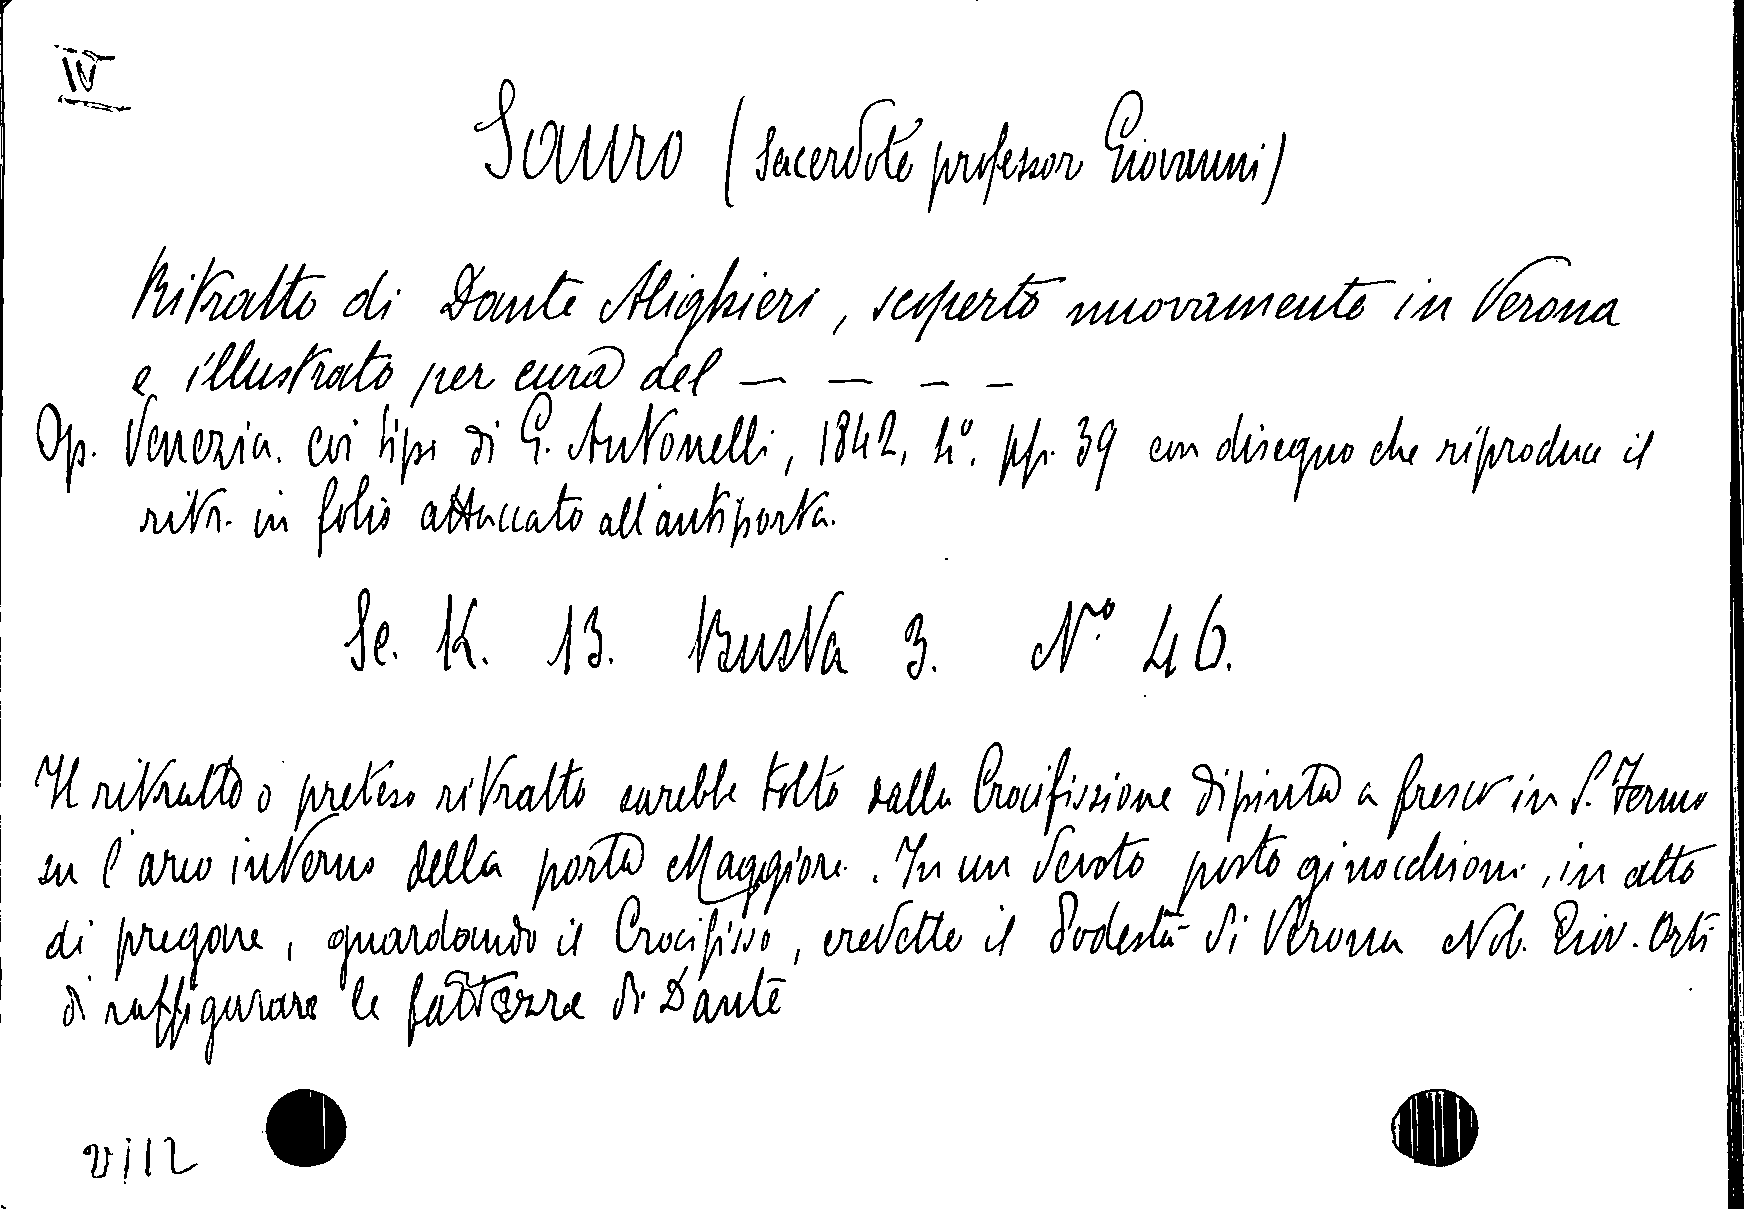 IV
Sauro (Sacerdote professor Giovanni)
Ritratto di Dante Alighieri, scoperto nuovamente in Verona
e illustrato per cura del — — — —
Op. Venezia. coi tipi di G. Antonelli, 1842, 4º. pp. 39 con disegno che riproduce il
ritr. in folio attaccato all'antiporta.
Se. K. 13. Busta 3. Nº 46.
Il ritratto o preteso ritratto sarebbe tolto dalla Crocifissione dipinta a fresco in S. Fermo
su l'arco interno della porta Maggiore. In un devoto posto ginocchioni, in atto
di pregare, guardando il Crocifisso, credette il Podestà di Verona Nob. Giov. Orti
di raffigurare le fattezze di Dante